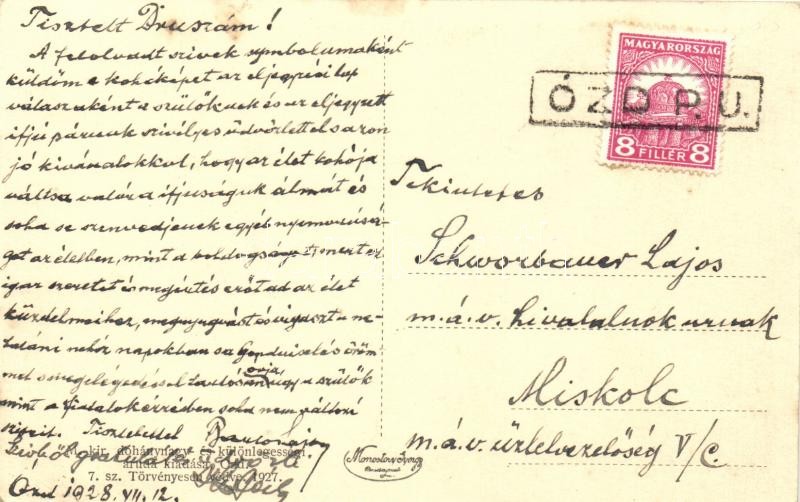 Tisztelt Druszám!
A felolvadt szivek symbolumaként
küldöm e kohóképet az eljegyzési lap
válaszaként a szülőknek és az eljegyzett
ifjú párnak szivélyes üdvözlettel s azon
jó kivánatokkal, hogy az élet kohója
váltsa valóra ifjuságuk álmát és
soha se szenvedjenek egyéb nyomorúsá-
got az életben, mint a boldogság, mert az
igaz szeretet és megértés erőt ad az élet
küzdelmeihez, megnyugvást és vigaszt a ne-
taláni nehéz napokban s a Gondviselés öröm-
met s megelégedéssel óvja úgy a szülők
mint a fiatalok soha nem változó
sziveit. Tisztelettel
Ózd 1928. VII. 12.
M. kir. dohánynagy- és különlegességi
áruda kiadása, Ózd.
7. sz. Törvényesen védve. 1927.
Monostory György
Budapest
MAGYARORSZÁG
8 FILLÉR 8
ÓZD P. U.
Tekintetes
Schworbauer Lajos
m.á.v. hivatalnok urnak
Miskolc
m.á.v. üzletvezetőség V/C.